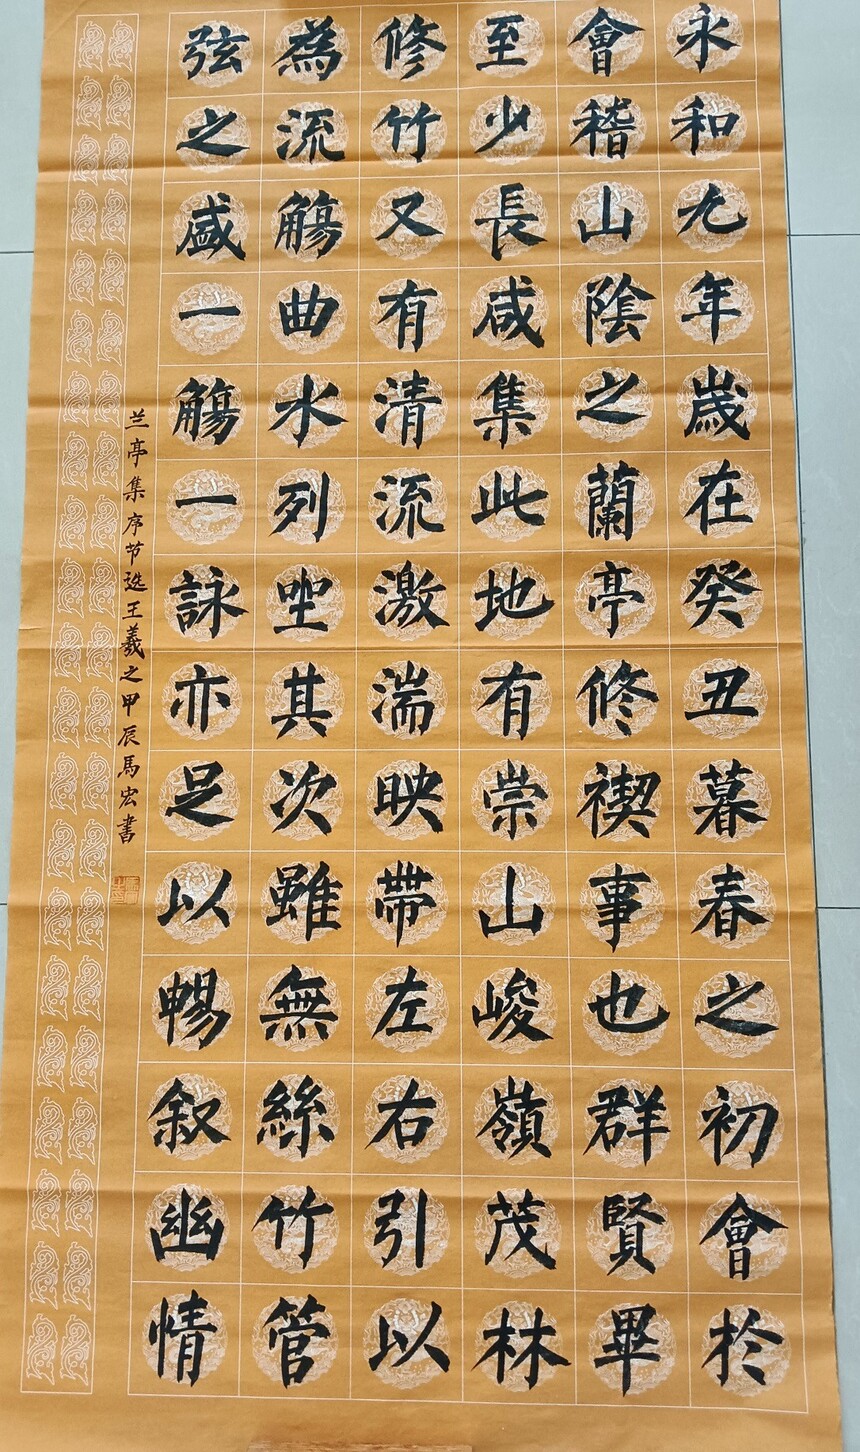 永和九年歲在癸丑暮春之初會於
會稽山陰之蘭亭修禊事也群賢畢
至少長咸集此地有崇山峻嶺茂林
修竹又有清流激湍映帶左右引以
為流觴曲水列坐其次雖無絲竹管
弦之盛一觴一詠亦足以暢叙幽情
兰亭集序节选王羲之甲辰馬宏書